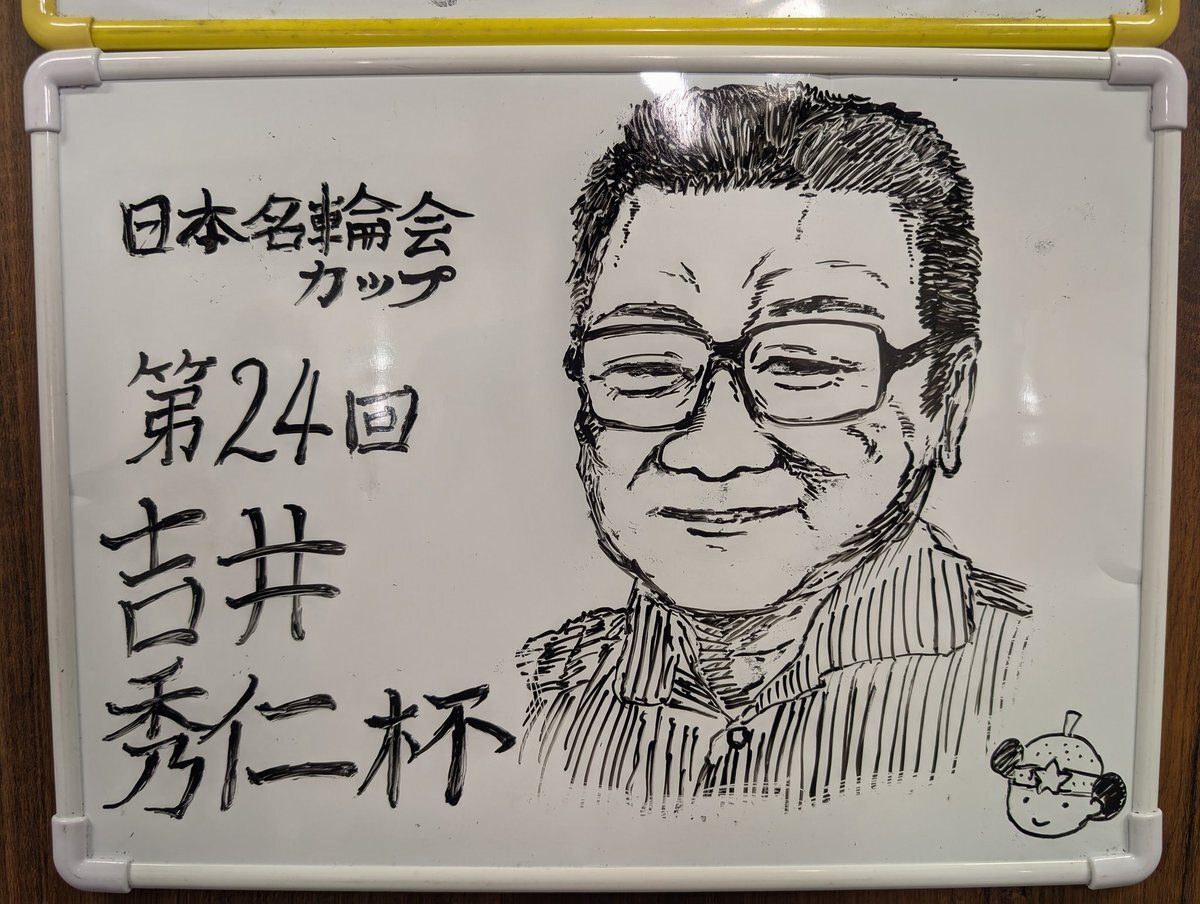 日本名輪会
カップ
第24回
吉井
秀仁杯